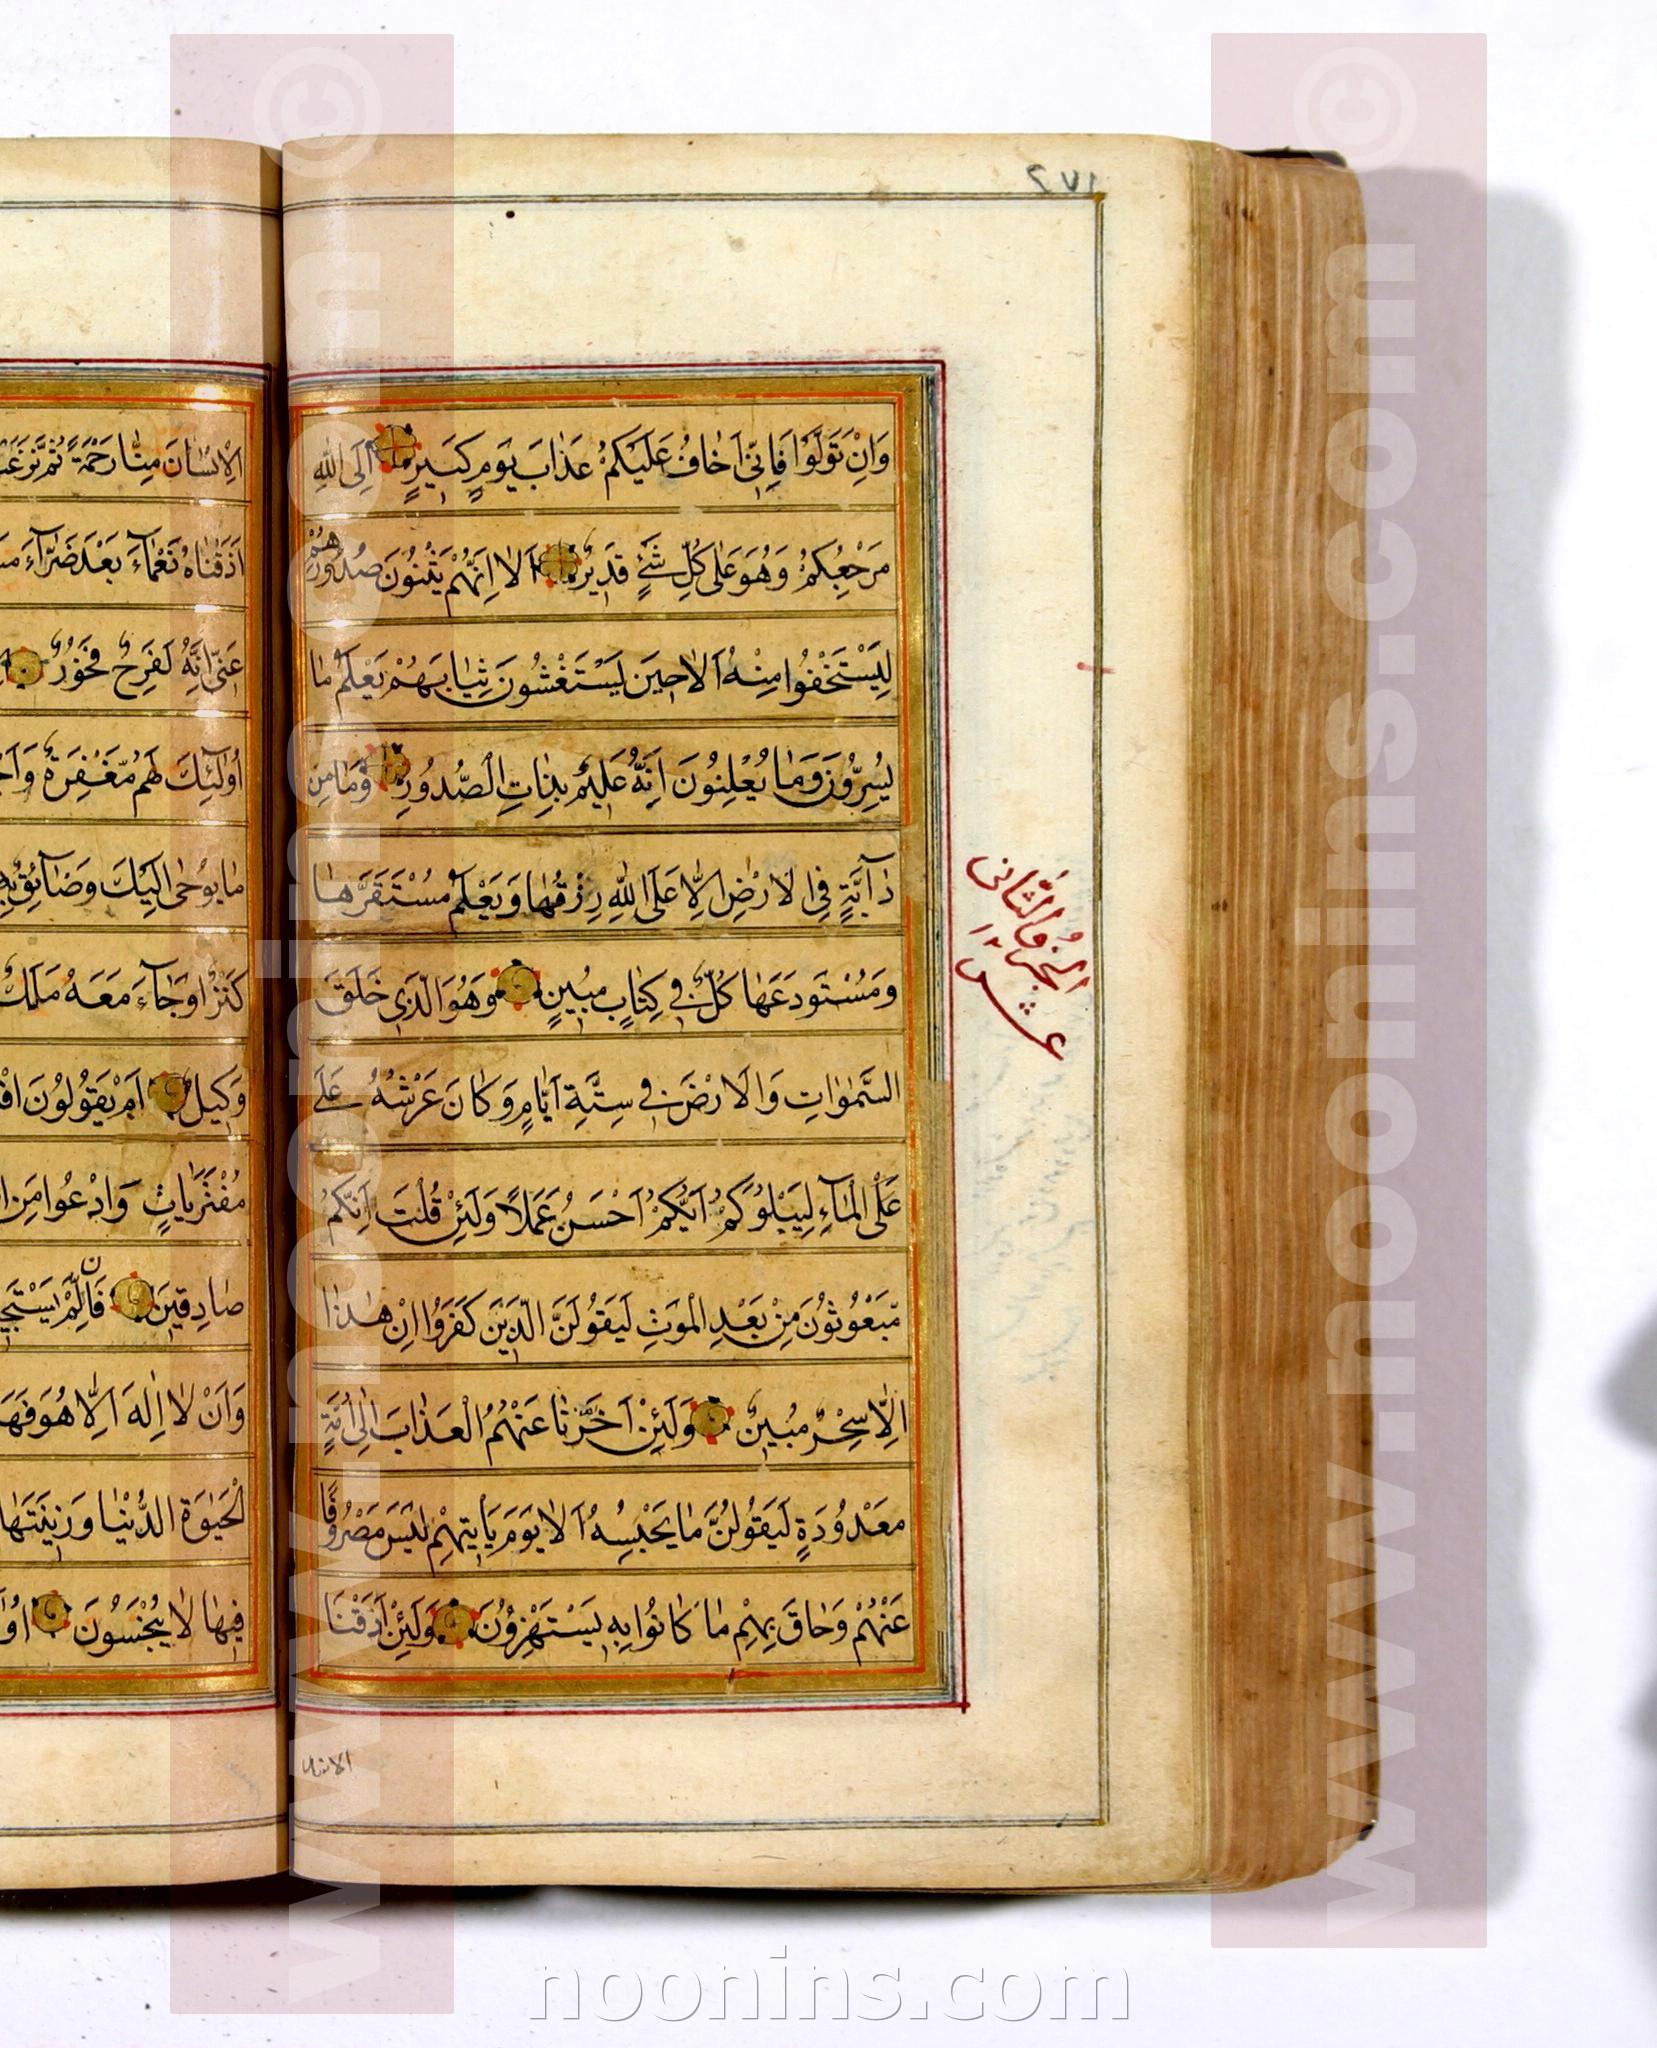 ٢٧١
وَاِنْ تَوَلَّوْا فَاِنّٖٓى اَخَافُ عَلَيْكُمْ عَذَابَ يَوْمٍ كَبٖيرٍ اِلَى اللهِ
مَرْجِعُكُمْ وَهُوَ عَلٰى كُلِّ شَىْءٍ قَدٖيرٌ اَلَا اِنَّهُمْ يَثْنُونَ صُدُورَهُمْ
لِيَسْتَخْفُوا مِنْهُ اَلَا حٖينَ يَسْتَغْشُونَ ثِيَابَهُمْ يَعْلَمُ مَا
يُسِرُّونَ وَمَا يُعْلِنُونَ اِنَّهُ عَلٖيمٌ بِذَاتِ الصُّدُورِ وَمَا مِنْ
دَآبَّةٍ فِى الْاَرْضِ اِلَّا عَلَى اللهِ رِزْقُهَا وَيَعْلَمُ مُسْتَقَرَّهَا
وَمُسْتَوْدَعَهَا كُلٌّ فٖى كِتَابٍ مُبٖينٍ وَهُوَ الَّذٖى خَلَقَ
السَّمٰوَاتِ وَالْاَرْضَ فٖى سِتَّةِ اَيَّامٍ وَكَانَ عَرْشُهُ عَلَى
عَلَى الْمَآءِ لِيَبْلُوَكُمْ اَيُّكُمْ اَحْسَنُ عَمَلًا وَلَئِنْ قُلْتَ اِنَّكُمْ
مَبْعُوثُونَ مِنْ بَعْدِ الْمَوْتِ لَيَقُولَنَّ الَّذٖينَ كَفَرُوا اِنْ هٰذَا
اِلَّا سِحْرٌ مُبٖينٌ وَلَئِنْ اَخَّرْنَا عَنْهُمُ الْعَذَابَ اِلٰى اُمَّةٍ
مَعْدُودَةٍ لَيَقُولُنَّ مَا يَحْبِسُهُ اَلَا يَوْمَ يَاْتٖيهِمْ لَيْسَ مَصْرُوفًا
عَنْهُمْ وَحَاقَ بِهِمْ مَا كَانُوا بِهٖ يَسْتَهْزِؤُنَ وَلَئِنْ اَذَقْنَا
الانسان
الجزؤ الثانى
١٢
عشر
الْاِنْسَانَ مِنَّا رَحْمَةً ثُمَّ
اَذَقْنَاهُ نَعْمَآءَ بَعْدَ ضَرَّآءَ
عَنّٖى اِنَّهُ لَفَرِحٌ فَخُورٌ
اُولٰٓئِكَ لَهُمْ مَغْفِرَةٌ
مَا يُوحٰى اِلَيْكَ وَضَآئِقٌ
كَنْزٌ اَوْ جَآءَ مَعَهُ مَلَكٌ
وَكٖيلٌ اَمْ يَقُولُونَ
مُفْتَرَيَاتٍ وَادْعُوا مَنِ
صَادِقٖينَ فَاِلَّمْ
وَاَنْ لَا اِلٰهَ اِلَّا هُوَ
الْحَيٰوةَ الدُّنْيَا وَزٖينَتَهَا
فٖيهَا لَا يُبْخَسُونَ
www.noonins.com ©
www.noonins.com ©
noonins.com